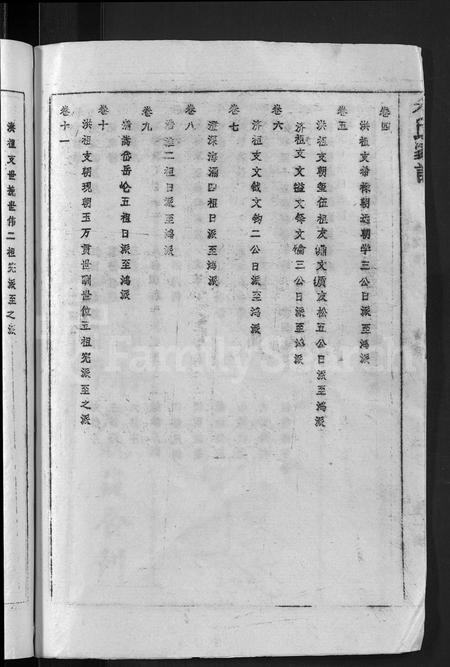 卷四
洪祖支 朝选朝学三公日派至鸿派
卷五
洪祖支朝 祖支 文 友松五公日派至鸿派
卷六
济祖支文 文 文 三公日派至鸿派
卷七
济祖支文钺文钧二公日派至鸿派
卷八
澄深海涌四祖日派至鸿派
卷九
二祖日派至鸿派
嵩岱岳伦五祖日派至鸿派
卷十
洪祖支朝现朝玉万贯世嗣世位五祖宪派至之派
卷十一
洪祖支世 世伟二祖宪派至之派
FamilySearch